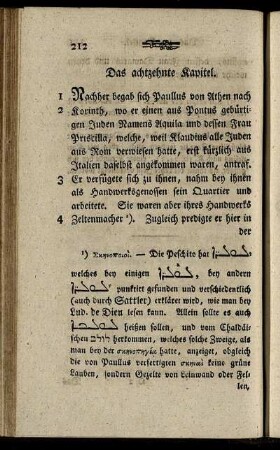 212
Das achtzehnte Kapitel.
1 Nachher begab sich Paullus von Athen nach
2 Korinth, wo er einen aus Pontus gebürti-
gen Juden Namens Aquila und dessen Frau
Priscilla, welche, weil Klaudius alle Juden
aus Rom verwiesen hatte, erst kürzlich aus
Italien daselbst angekommen waren, antraf.
3 Er verfügete sich zu ihnen, nahm bey ihnen
als Handwerksgenossen sein Quartier und
arbeitete. Sie waren aber ihres Handwerks
4 Zeltenmacher ¹). Zugleich predigte er hier in
der
¹) Σκηνοποιοι. — Die Peschito hat
welches bey einigen bey andern
punktirt gefunden und verschiedentlich
(auch durch Sattler) erkläret wird, wie man bey
Lud. de Dieu lesen kann. Allein sollte es auch
heißen sollen, und vom Chaldäi-
schen herkommen, welches solche Zweige, als
man bey der σκηνοπηγια hatte, anzeiget, obgleich
die von Paullus verfertigten σκηναι keine grüne
Lauben, sondern Gezelte von Leinwand oder Fel-
len,